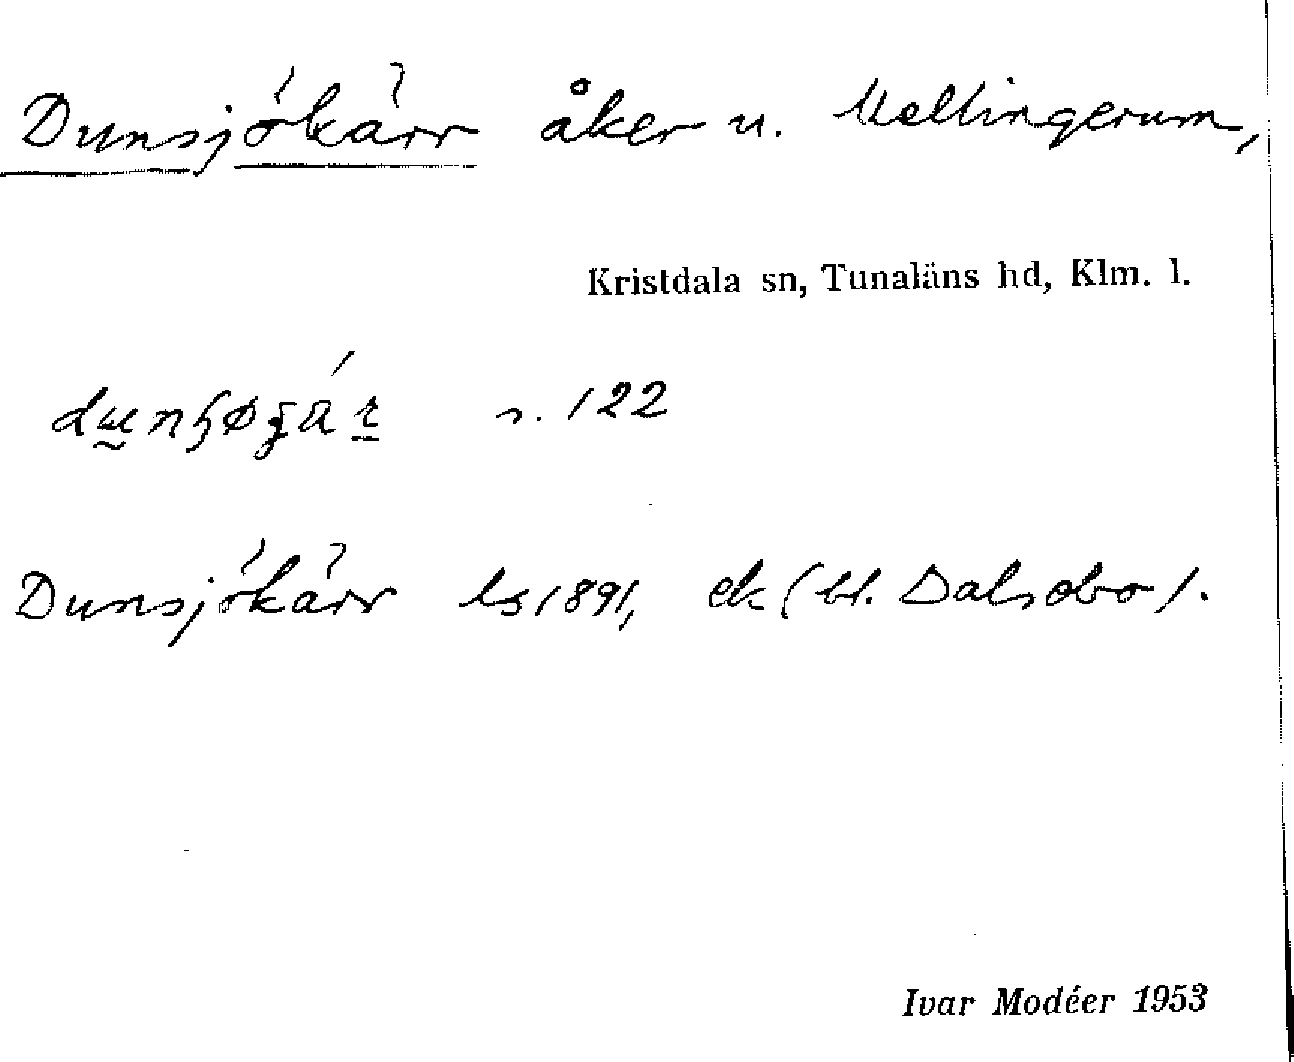 Dunsjökärr åker u. Mellingerum,
Kristdala sn, Tunaläns hd, Klm. l.
s. 122
Dunsjökärr ls 1891, ek (bl. Dalsebo).
Ivar Modéer 1953